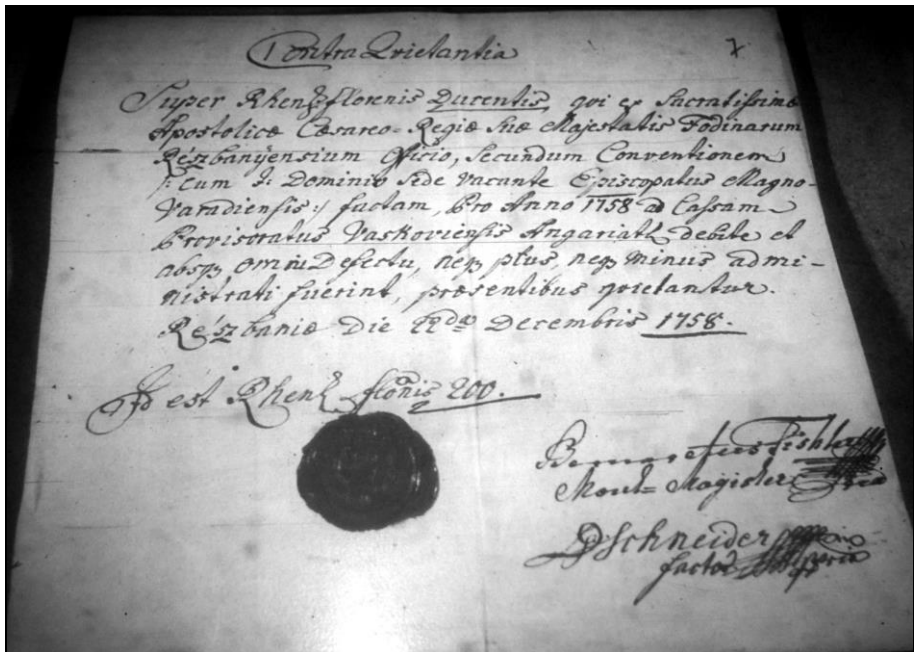 Contra Qvietantia
7
Super Rhen. florenis Ducentis, qvi ex Sacratissimæ
Apostolicæ Cæsareo-Regiæ Suæ Majestatis Fodinarum
Rézbanÿensium Officio, Secundum Conventionem
/: cum I: Dominio Sede vacante Episcopatus Magno-
Varadiensis :/ factam, Pro Anno 1758 ad Cassam
Provisoratus Vaskoviensis debite et
absq Defectu, neq plus, neq minus admi-
nistrati fuerint, præsentibus qvietantur.
Rézbaniæ Die 22da Decembris 1758.
Id est Rhen. flonis 200.
Fishler
Magister
Schneider
factor